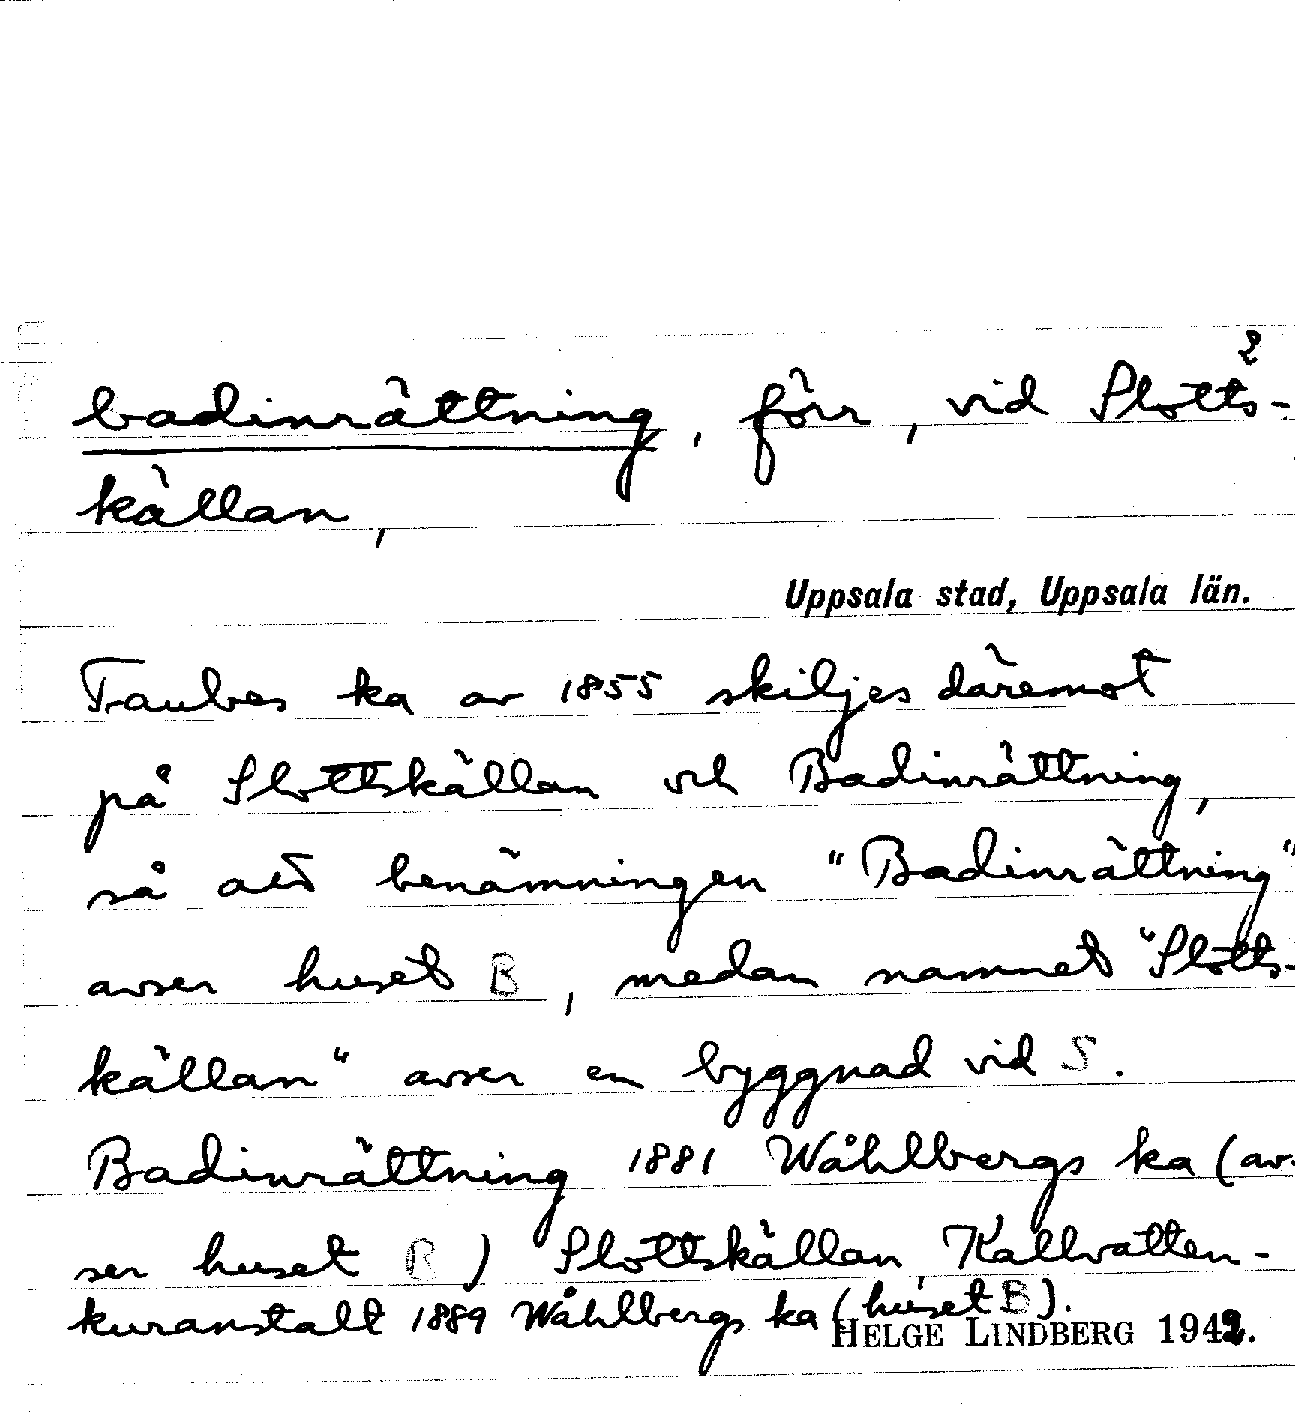 2
badinrättning, förr, vid Slotts-
källan,
Uppsala stad, Uppsala län.
Traubes ka av 1855 skiljes däremot
på Slottskällan och Badinrättning,
så att benämningen "Badinrättning"
avser huset B, medan namnet "Slotts-
källan" avser en byggnad vid S.
Badinrättning 1881 Wåhlbergs ka (av-
ser huset B) Slottskällan Kallvatten-
kuranstalt 1889 Wåhlbergs ka (huset B).
HELGE LINDBERG 1942.